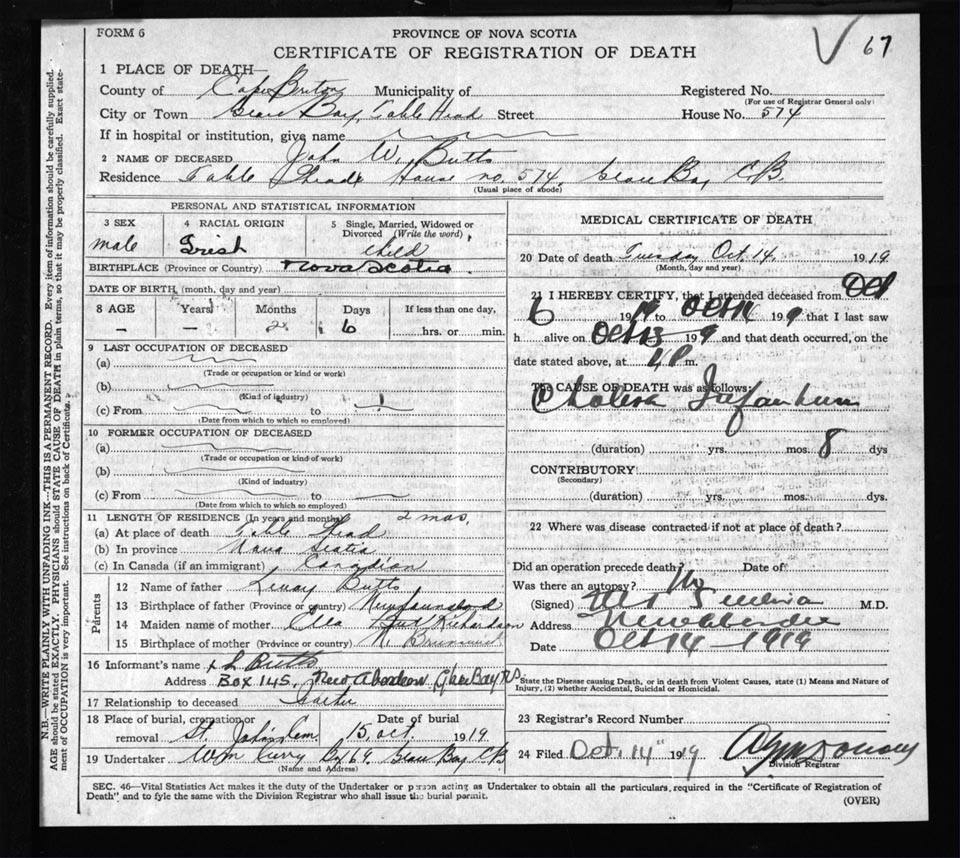 FORM 6
PROVINCE OF NOVA SCOTIA
67
CERTIFICATE OF REGISTRATION OF DEATH
1 PLACE OF DEATH
County of Cape Breton Municipality of Registered No.
(For use of Registrar General only)
City or Town Glace Bay, Table Head Street House No. 574
If in hospital or institution, give name
2 NAME OF DECEASED John W. Butts
Residence Table Head House no. 574, Glace Bay C.B.
(Usual place of abode)
PERSONAL AND STATISTICAL INFORMATION
3 SEX 4 RACIAL ORIGIN 5 Single, Married, Widowed or Divorced (Write the word)
male Irish child
BIRTHPLACE (Province or Country) Nova Scotia
DATE OF BIRTH (month, day and year)
8 AGE Years Months Days If less than one day,
– – 2 6 hrs. or min.
9 LAST OCCUPATION OF DECEASED
(a)
(Trade or occupation or kind or work)
(b)
(Kind of industry)
(c) From to
(Date from which to which so employed)
10 FORMER OCCUPATION OF DECEASED
(a)
(Trade or occupation or kind of work)
(b)
(Kind of industry)
(c) From to
(Date from which to which so employed)
11 LENGTH OF RESIDENCE (In years and months) 2 mos.
(a) At place of death Table Head
(b) In province Nova Scotia
(c) In Canada (if an immigrant) Canadian
Parents
12 Name of father Butts
13 Birthplace of father (Province or country) Newfoundland
14 Maiden name of mother Ella Richardson
15 Birthplace of mother (Province or country) N. Brunswick
16 Informant's name L Butts
Address Box 145, New Aberdeen Glace Bay N.S.
17 Relationship to deceased Father
18 Place of burial, cremation or removal St. Johns Cem. Date of burial 15 Oct. 1919
19 Undertaker Wm Curry Bx 69. Glace Bay C.B
(Name and Address)
MEDICAL CERTIFICATE OF DEATH
20 Date of death Tuesday Oct. 14. 1919
(Month, day and year)
21 I HEREBY CERTIFY, that I attended deceased from Oct
6 1919 to Oct 14 1919 that I last saw
h alive on Oct 13 1919 and that death occurred, on the
date stated above, at 4 P m.
The CAUSE OF DEATH was as follows:
Cholera Infantum
(duration) yrs. mos. 8 dys
CONTRIBUTORY
(Secondary)
(duration) yrs. mos. dys.
22 Where was disease contracted if not at place of death?
Did an operation precede death? Date of
Was there an autopsy? No
(Signed) M.D.
Address New Aberdeen
Date Oct 14 – 1919
State the Disease causing Death, or in death from Violent Causes, state (1) Means and Nature of
Injury, (2) whether Accidental, Suicidal or Homicidal.
23 Registrar's Record Number
24 Filed Oct. 14" 1919
Division Registrar
SEC. 46—Vital Statistics Act makes it the duty of the Undertaker or person acting as Undertaker to obtain all the particulars, required in the "Certificate of Registration of
Death" and to fyle the same with the Division Registrar who shall issue the burial permit.
(OVER)
N.B.—WRITE PLAINLY WITH UNFADING INK—THIS IS A PERMANENT RECORD. Every item of information should be carefully supplied.
AGE should be stated EXACTLY. PHYSICIANS should STATE CAUSE OF DEATH in plain terms, so that it may be properly classified. Exact state-
ment of OCCUPATION is very important. See instructions on back of Certificate.